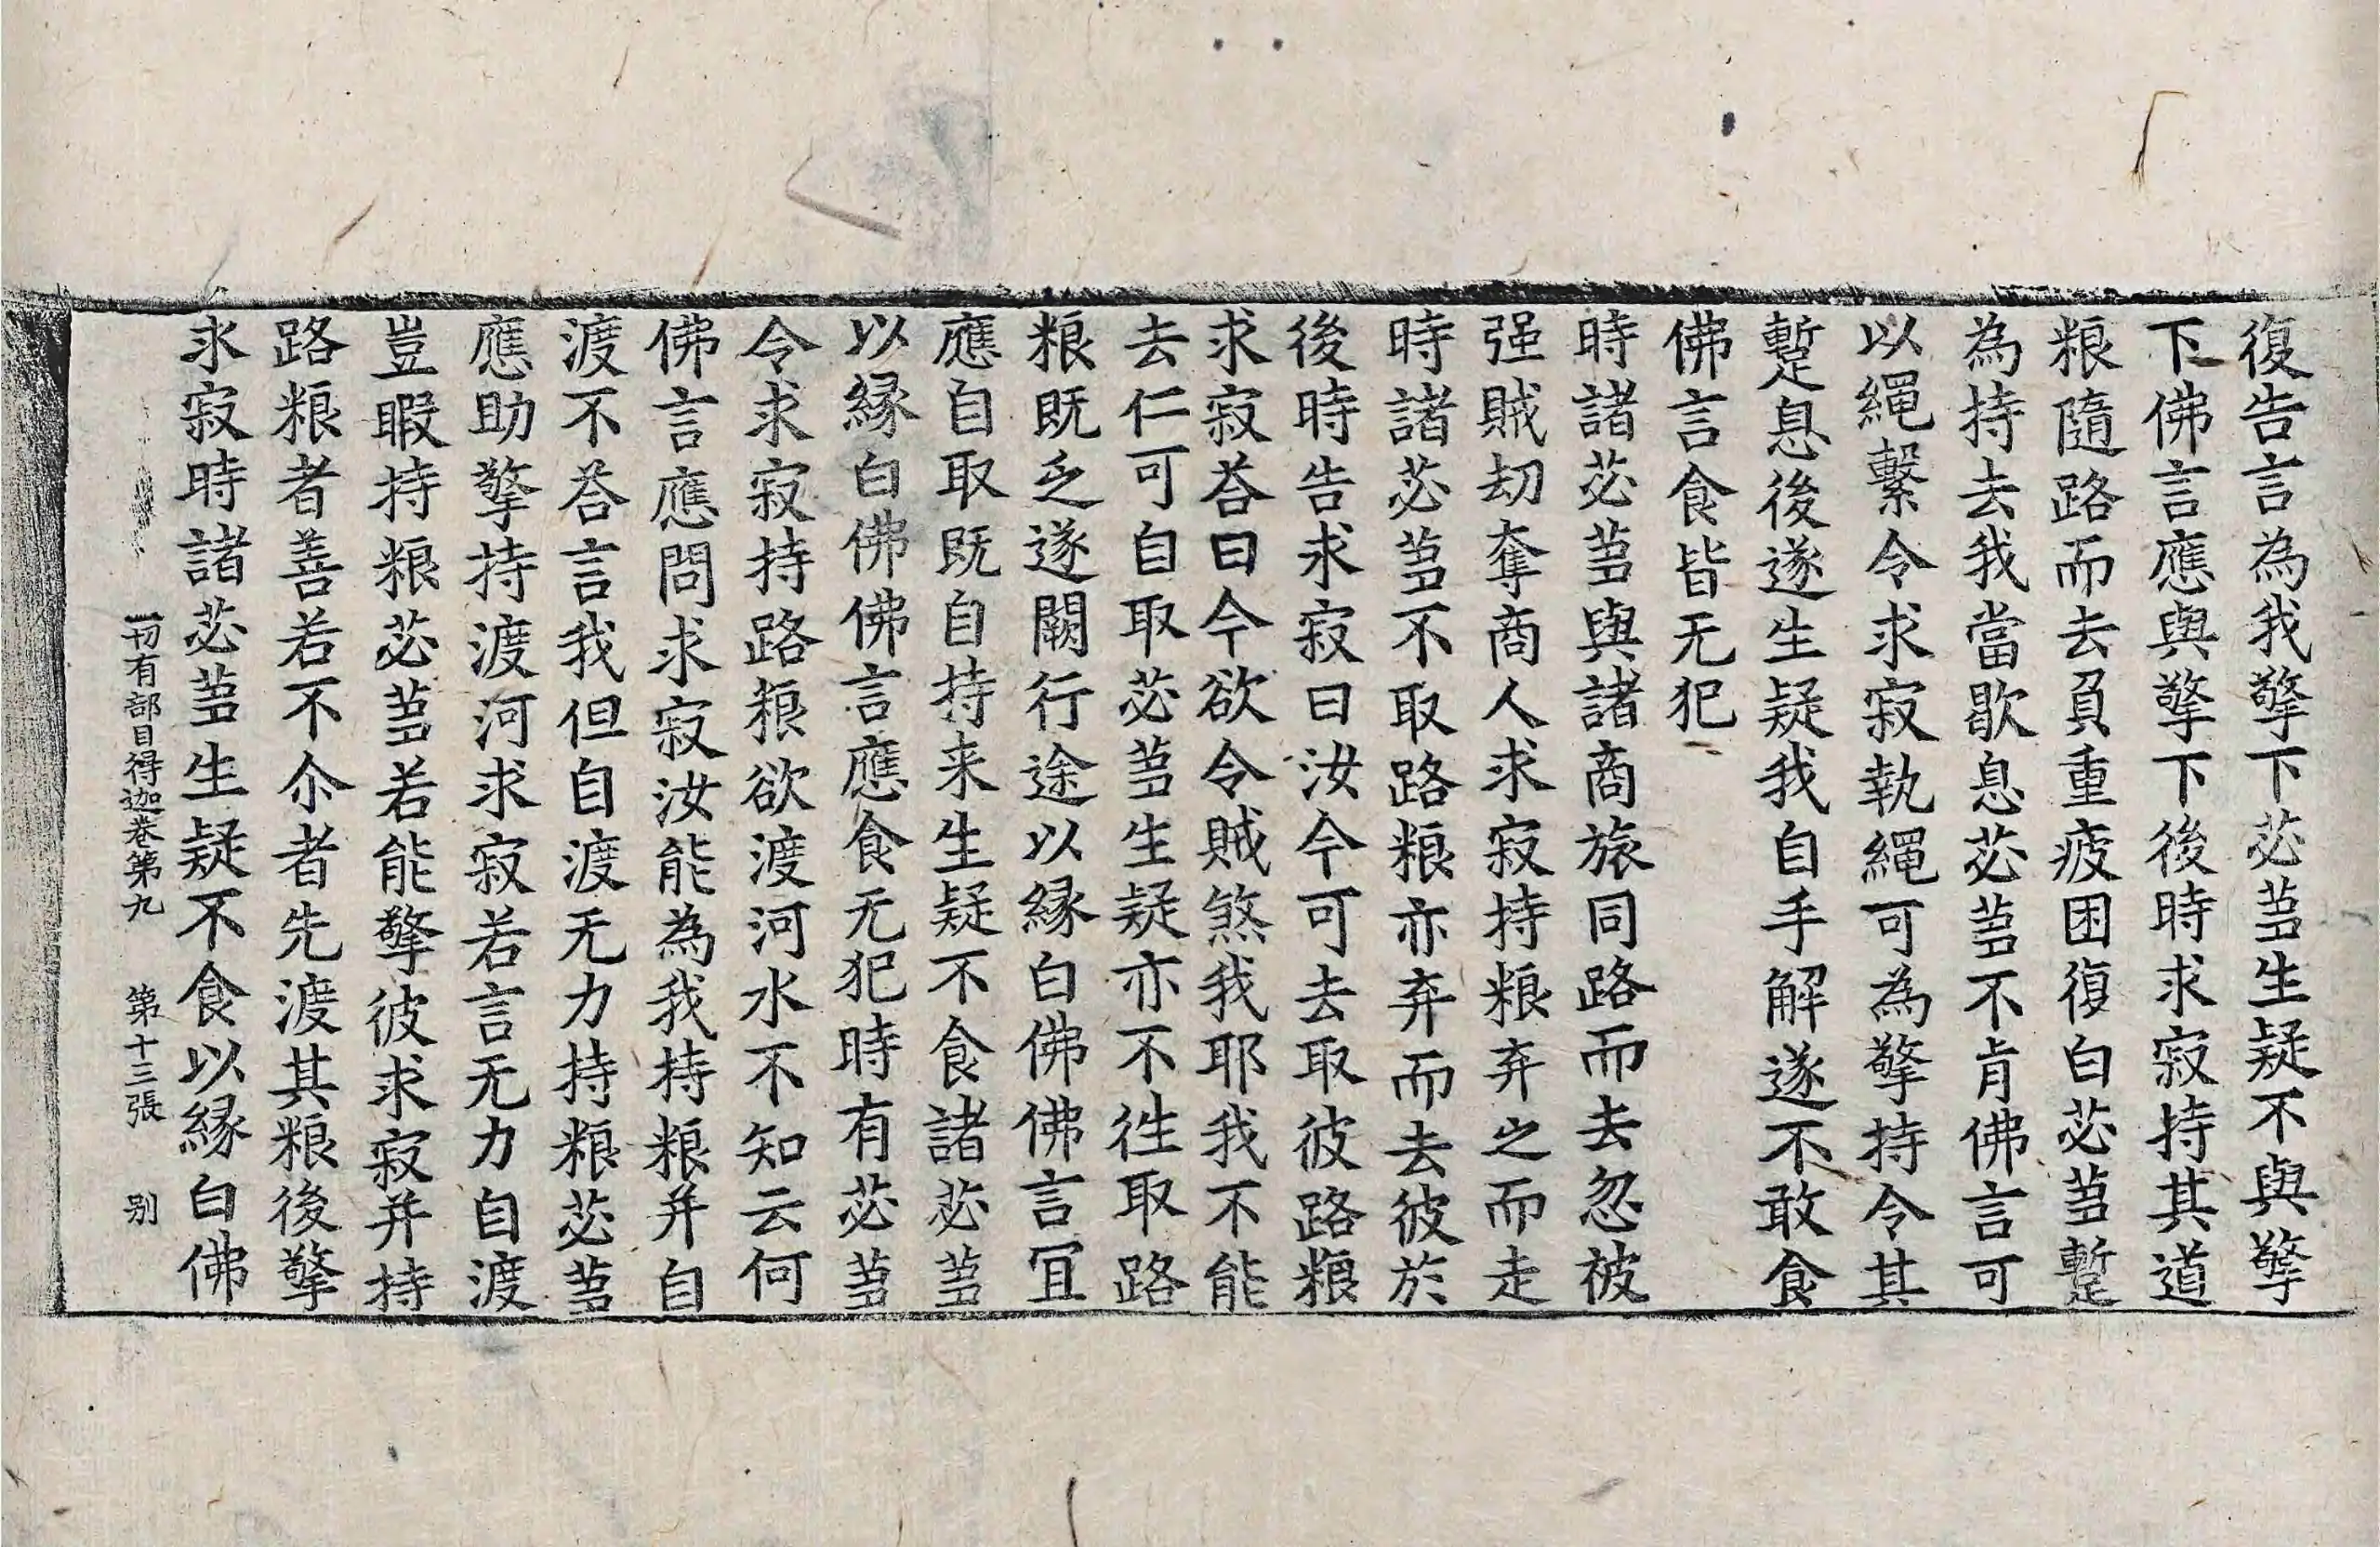 復告言為我擎下苾蒭生疑不與擎
下佛言應與擎下後時求寂持其道
粮隨路而去負重疲困復白苾蒭蹔
為持去我當歇息苾蒭不肯佛言可
以繩繫令求寂執繩可為擎持令其
蹔息後遂生疑我自手解遂不敢食
佛言食皆无犯
時諸苾蒭與諸商旅同路而去忽被
强賊刧奪商人求寂持粮弃之而走
時諸苾蒭不取路粮亦弃而去彼於
後時告求寂曰汝今可去取彼路粮
求寂荅曰今欲令賊煞我耶我不能
去仁可自取苾蒭生疑亦不徃取路
粮既乏遂闕行途以緣白佛佛言冝
應自取既自持来生疑不食諸苾蒭
以緣白佛佛言應食无犯時有苾蒭
令求寂持路粮欲渡河水不知云何
佛言應問求寂汝能為我持粮并自
渡不荅言我但自渡无力持粮苾蒭
應助擎持渡河求寂若言无力自渡
豈暇持粮苾蒭若能擎彼求寂并持
路粮者善若不尒者先渡其粮後擎
求寂時諸苾蒭生疑不食以緣白佛
一切有部目得迦卷第九　第十三張　别